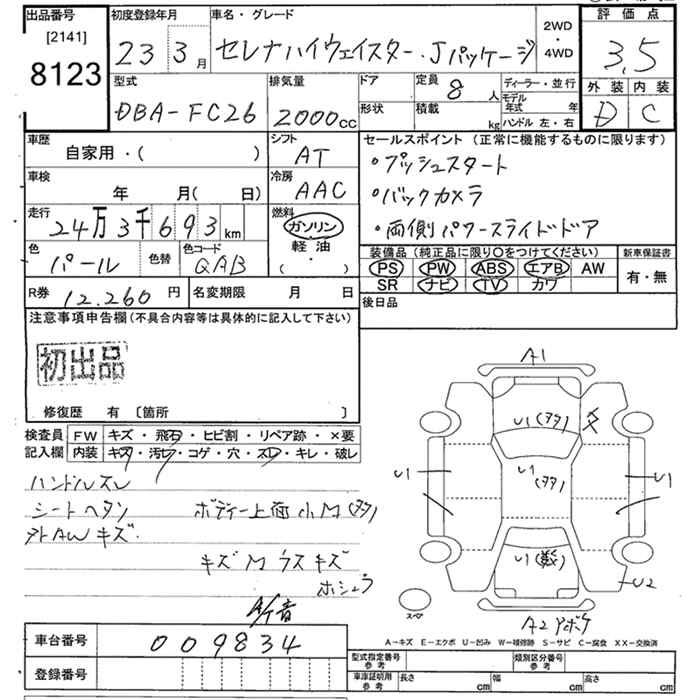 出品番号
[2141]
8123
初度登録年月
23 3月
車名・グレード
セレナハイウェイスター・Jパッケージ
2WD
・
4WD
評価点
3.5
外装 内装
D C
型式
DBA-FC26
排気量
2000cc
ドア
形状
定員
8人
積載
kg
ディーラー・並行
モデル年式 年
ハンドル 左・右
車歴
自家用・( )
シフト
AT
セールスポイント(正常に機能するものに限ります)
・プッシュスタート
・バックカメラ
・両側パワースライドドア
車検
年 月( 日)
冷房
AAC
走行
24万3千693km
燃料
ガソリン
軽油
( ・ )
色
パール
色替
色コード
QAB
装備品(純正品に限り○をつけてください)
PS PW ABS エアB AW
SR ナビ TV カワ
新車保証書
有・無
R券 12,260円
名変期限 月 日
後日品
注意事項申告欄(不具合内容等は具体的に記入して下さい)
初出品
修復歴 有 〔箇所 〕
検査員記入欄
FW キズ・飛石・ヒビ割・リペア跡・×要
内装 キズ・汚レ・コゲ・穴・スレ・キレ・破レ
ハンドルスレ
シートヘタリ
ボディー上面小M(タタ)
キズMウスキズ
ホシュウ
A/T音
A1
U1(タタ)
U1
U1
(タタ)
U1
U1(数)
U2
スペア
A2
A-キズ E-エクボ U-凹み W-補修跡 S-サビ C-腐食 XX-交換済
車台番号
009834
登録番号
型式指定番号
参考
類別区分番号
参考
車庫証明用
参考
長さ cm
幅 cm
高さ cm